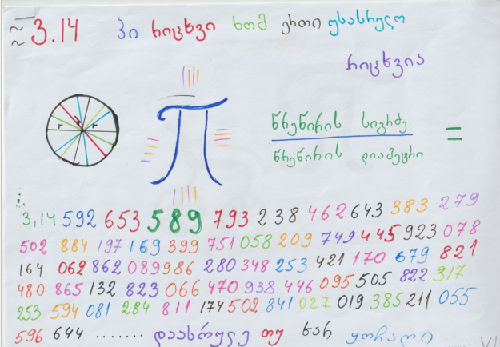 ≈ 3.14 პი რიცხვი ხომ ერთი უსასრულო
რიცხვია
r r
π
წრეწირის სიგრძე
წრეწირის დიამეტრი
=
3,14 592 653 589 793 238 462 643 383 279
502 884 197 169 399 751 058 209 749 445 923 078
164 062 862 089986 280 348 253 421 170 679 821
480 865 132 823 066 470 938 446 095 505 822 317
253 594 081 284 811 174 502 841 027 019 385 211 055
596 644 ........ დაასრულე თუ ხარ ყოჩაღი